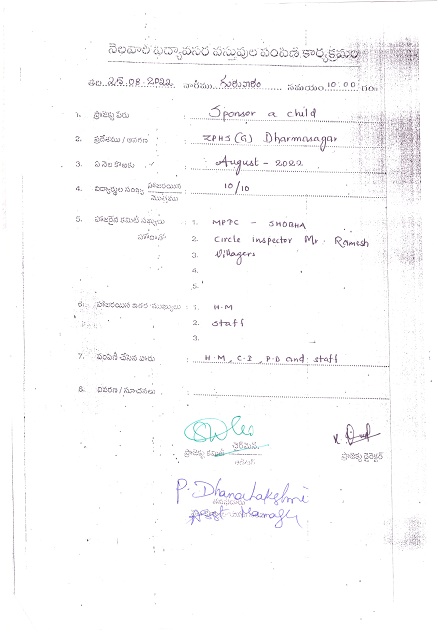 నెలవారీ విద్యావసర వస్తువుల పంపిణీ కార్యక్రమం
తేది. 25.08.2022 వారము గురువారం సమయం. 10:00 గం॥
1. ప్రాజెక్టు పేరు : Sponsor a child
2. ప్రదేశము / ZPHS (G) Dharmasagar
3. ఏ నెల కొరకు : August - 2022
4. విద్యార్థుల సంఖ్య హాజరయిన / మొత్తము : 10/10
5. హాజరైన కమిటీ సభ్యులు : 1. MPTC - SHOBHA
2. Circle inspector Mr. Ramesh
3. Villagers
4.
5.
6. హాజరయిన ఇతర ముఖ్యులు : 1. H.M
2. Staff
3.
7. పంపిణీ చేసిన వారు : H.M, C.I, P.D and staff
8. వివరణ / సూచనలు :
ప్రాజెక్టు కమిటీ చైర్మన్ ప్రాజెక్టు డైరెక్టర్
P. Dhanalakshmi